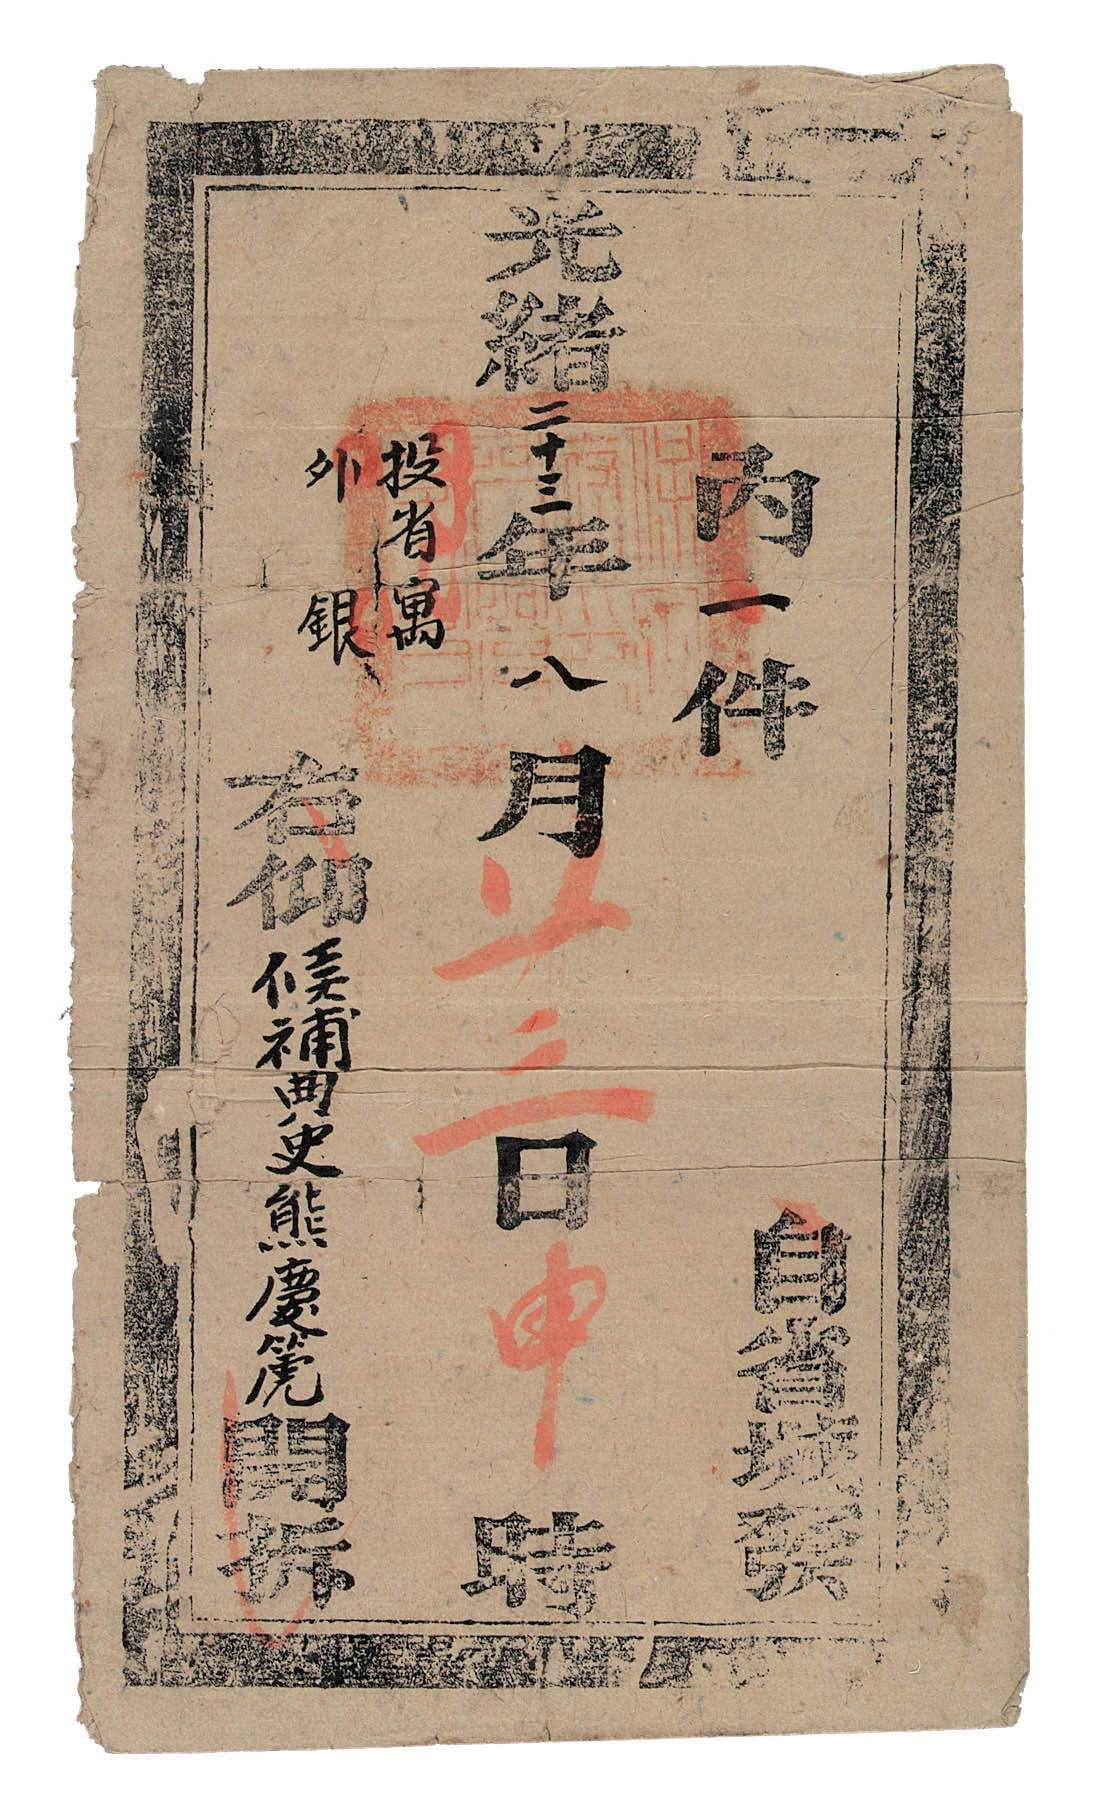 內一件
自省城發
光緒二十三年八月廿三日申時
投省寓
外 銀
右仰候補典史熊慶篪開拆